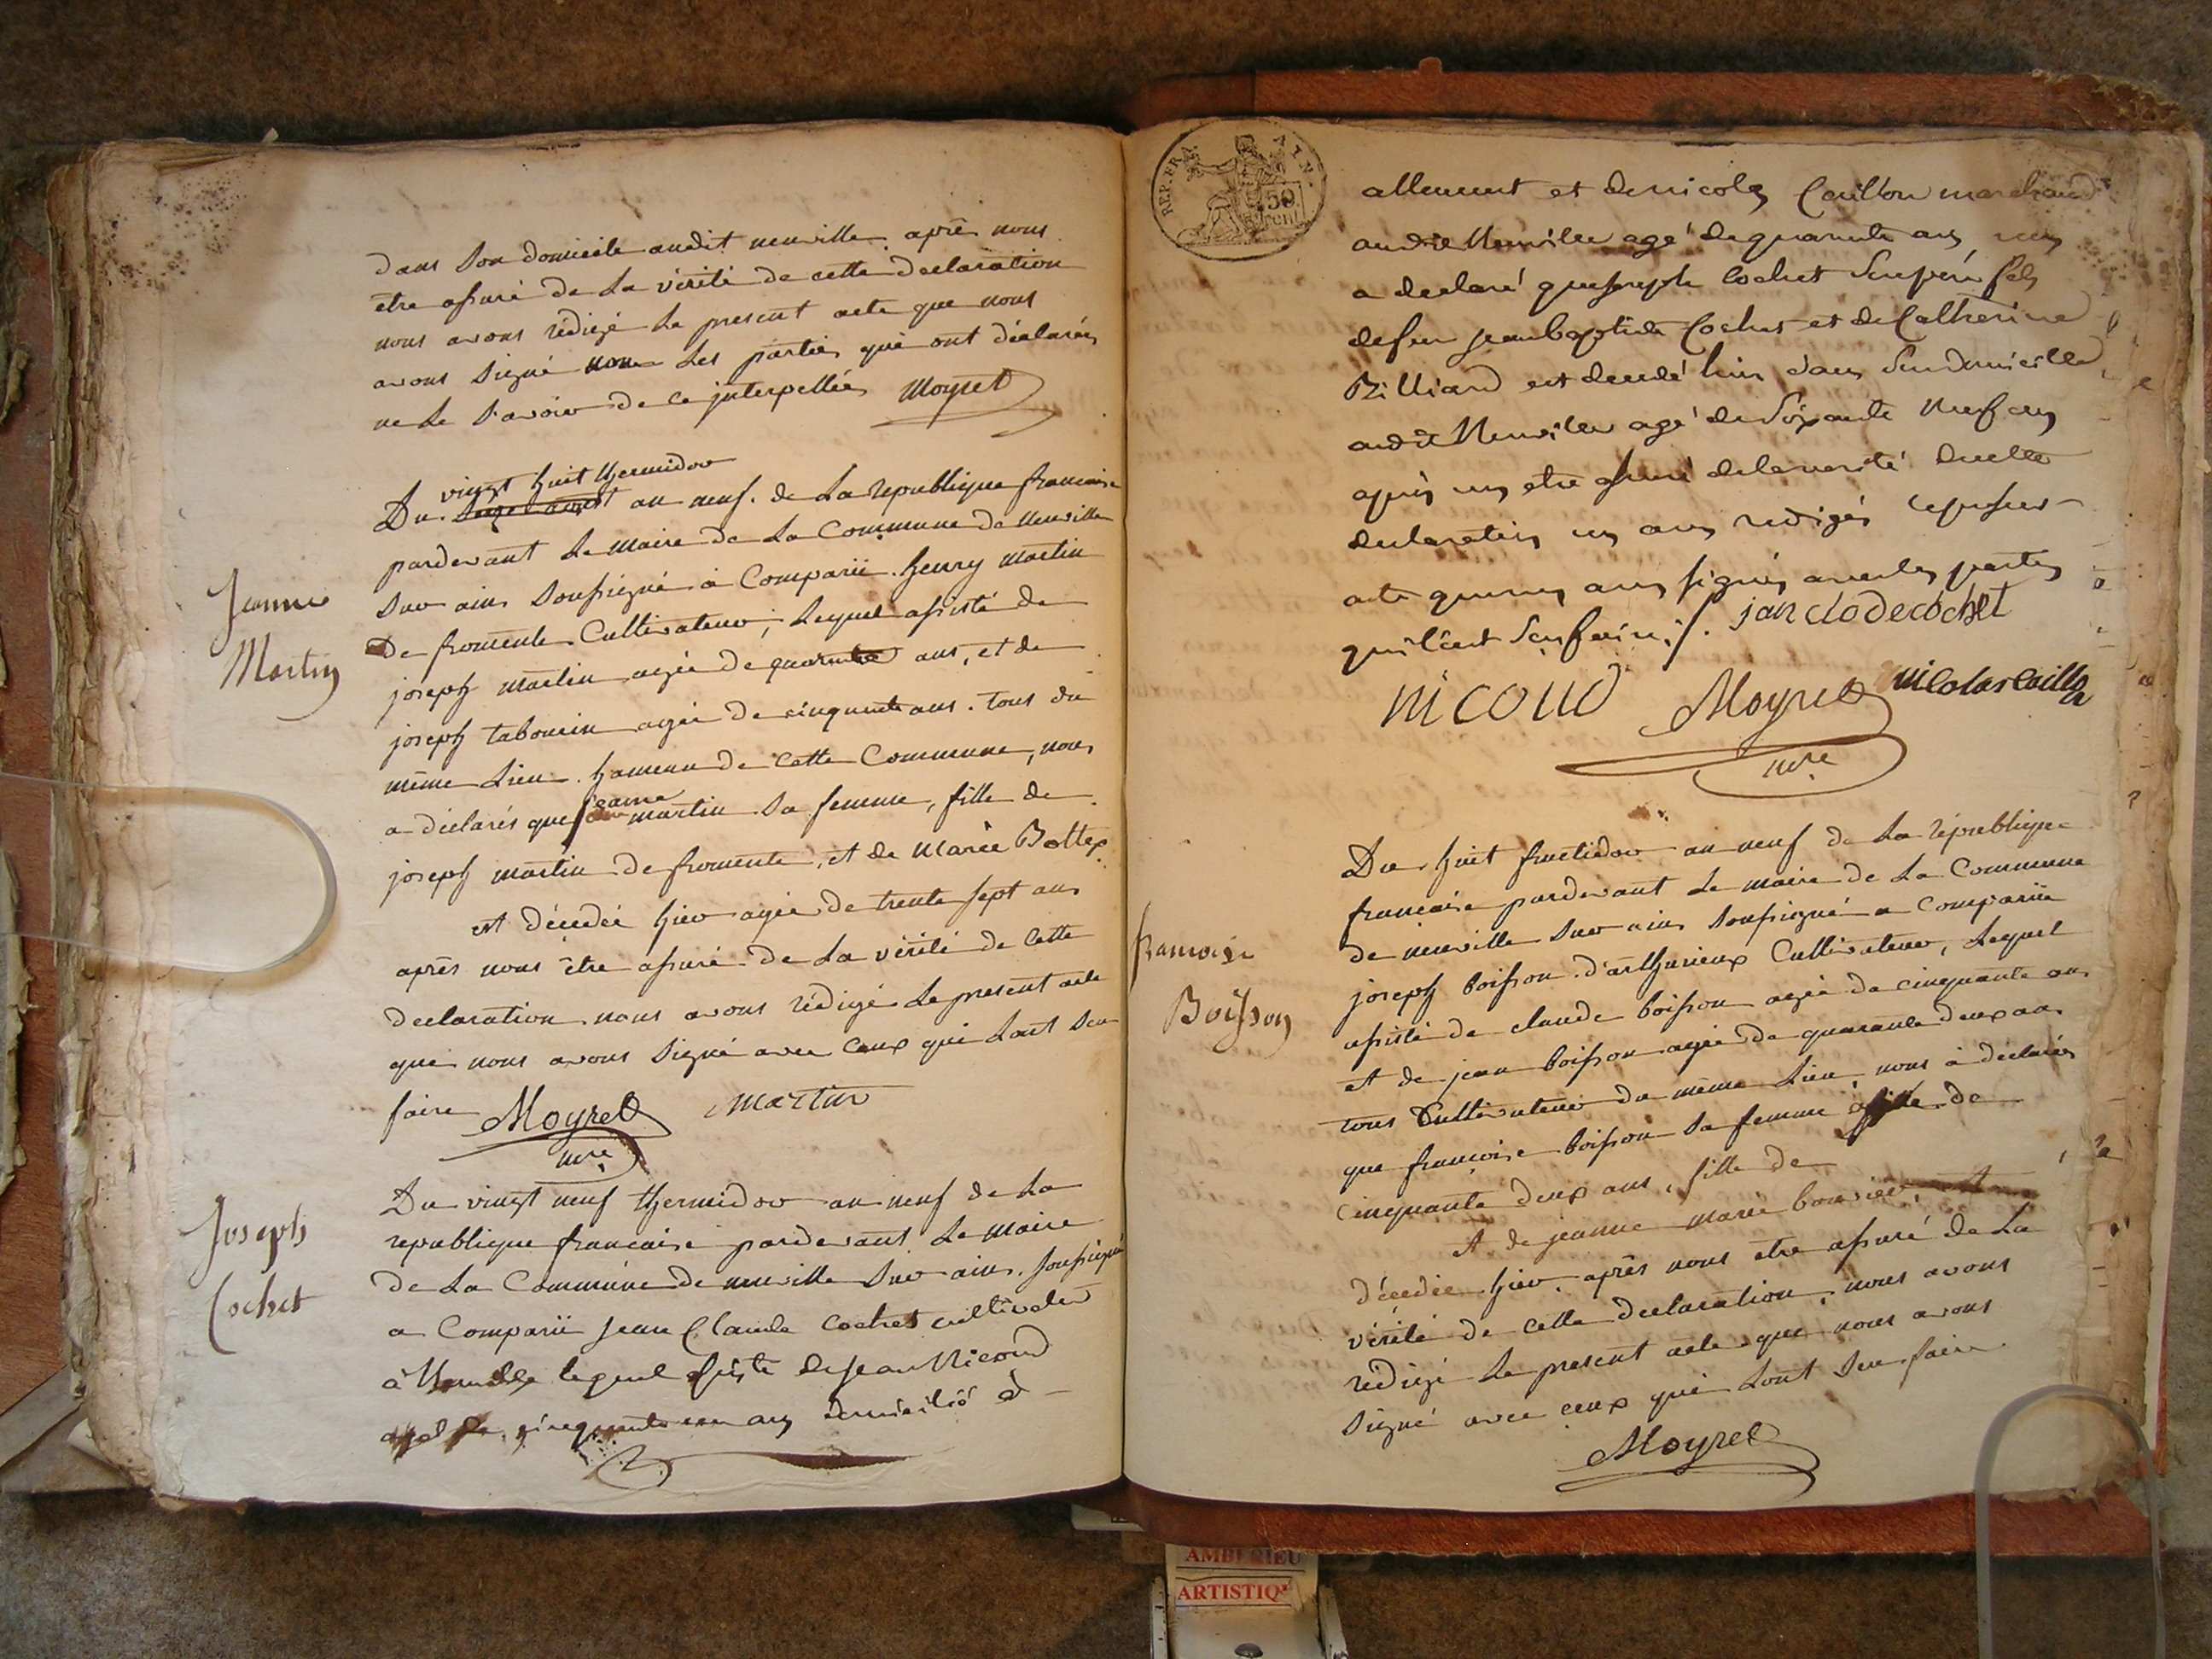 dans son domicile audit neuville, après nous
être assuré de la vérité de cette declaration
nous avons rédigé le present acte que nous
avons signé non les parties qui ont déclarées
ne le savoir de ce interpellées Moyret
vingt huit thermidor
Du an neuf. de la republique francaise
pardevant le maire de la Commune de neuville
sur ain soussigné à Comparü henry martin
De fromente Cultivateur, lequel assisté de
joseph martin agée de quarante ans, et de
joseph tabourin agée de cinquante ans. tous du
même lieu hameau de cette Commune, nous
a déclarés que jeanne martin sa femme, fille de
joseph martin de fromente, et de Marie Bottex
est décedée hier agée de trente sept ans
après nous être assuré de la vérité de cette
declaration nous avons rédigé le present acte
que nous avons signé avec ceux qui l'ont sçu
faire Moyret martin
mre
Jeanne
Martin
Du vingt neuf thermidor an neuf de la
republique francaise pardevant le maire
de la Commune de neuville sur ain. soussigné
a Comparü jean Claude Cochet cultivateur
à Neuville lequel assisté de jean Nicoud
agé de cinquante un ans domicilié à
Joseph
Cochet
REP. FRA.
50
cent.
allement et de nicolas Caillon marchand
audit Neuville agé de quarante ans, nous
a declaré que joseph Cochet son père fils
de feu jean baptiste Cochet et de Catherine
Billiard est decedé hier dans son domicille
audit Neuville agé de soixante neuf ans
après nous etre assuré de la verité de cette
declaration nous avons redigés le present
acte que nous avons signés avec les parties
qui l'ont sçu faire ./. jan clode cochet
nicoud Moyret nicolas caillon
mre
Du huit fructidor an neuf de la république
francaise pardevant le maire de la Commune
de neuville sur ain soussigné a Comparüe
joseph boisson d'arthurieux Cultivateur, lequel
assisté de claude boisson agée de cinquante ans
et de jean boisson agée de quarante deux ans
tous Cultivateur du même lieu, nous à déclarés
que francoise boisson sa femme agée de
cinquante deux ans, fille de
et de jeanne marie bouvier, est
décedée hier, après nous etre assuré de la
vérité de cette declaration, nous avons
rédigé le present acte que nous avons
signé avec ceux qui l'ont sçu faire
Moyret
francoise
Boisson
AMBERIEU
ARTISTIQ